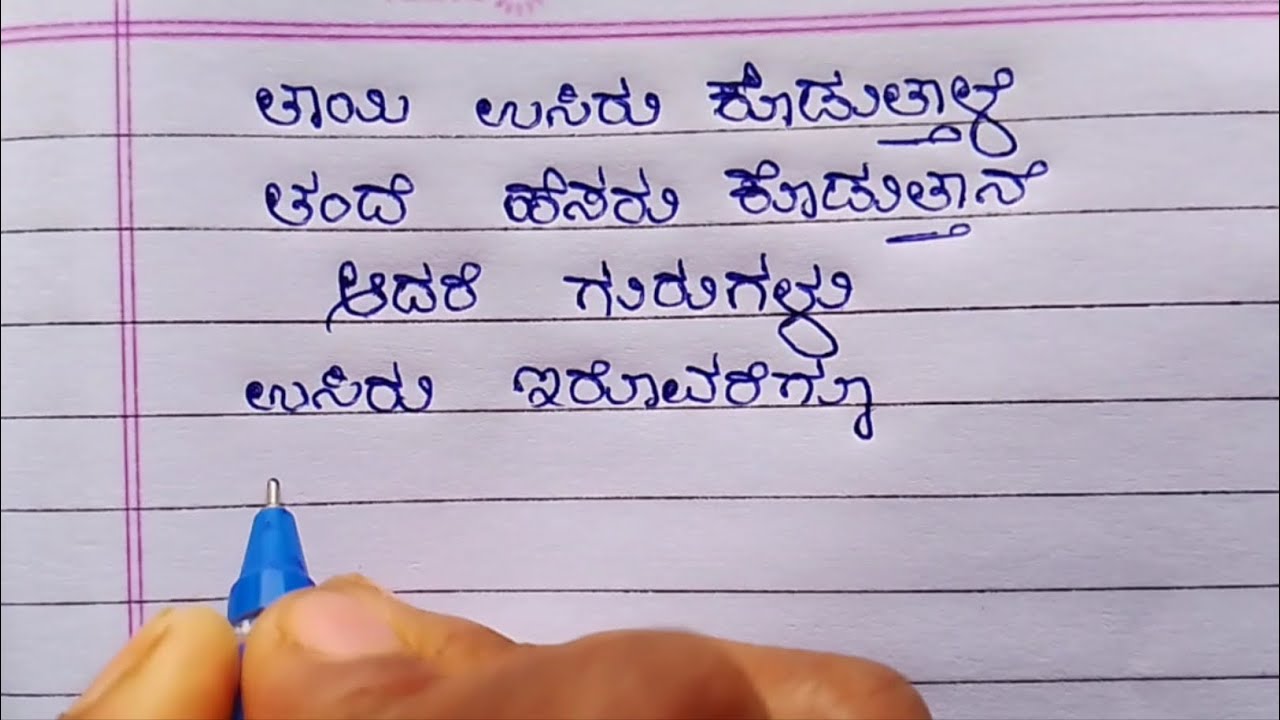 ತಾಯಿ ಉಸಿರು ಕೊಡುತ್ತಾಳೆ
ತಂದೆ ಹೆಸರು ಕೊಡುತ್ತಾನೆ
ಆದರೆ ಗುರುಗಳು
ಉಸಿರು ಇರೋವರೆಗೂ